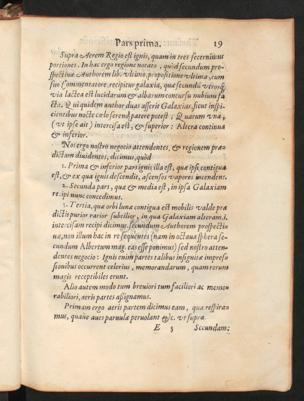 Pars prima. 19
Supra Aerem Regio est ignis, quam in tres secernimus
portiones. In hac ergo regione notato, quod secundum pro-
spectiuæ Authorem lib. vltimo, propositione vltima, cum
suo Commentatore, recipitur galaxia, quæ secundũ
via lactea est lucidarum & albarum concursu nubium fa
cta. Qui quidem author duas asserit Galaxias, sicut inspi-
cientibus nocte cælo serend patere potest; Quarum vna,
(vt ipse ait) intercisa est, & superior: Altera continua
& inferior.
Nos ergo nostro negocio attendentes, & regionem præ
dictam diuidentes, dicimus, quòd
1. Prima & inferior pars igni illa est, quæ ipse contigua
est, & ex qua ignis descendit, ascensos vapores incendens.
2. Secunda pars, quæ & media est, in ipsa Galaxiam
re ipi nunc concedimus.
3. Tertia, quæ orbi lunæ contigua est mobilis valde præ
dictis purior rarior subtilior, in qua Galaxiam alteram.i.
intercisam recipi dicimus, secundum Authorem prospecti
uæ, non illum hac in re sequentes (nam in octaua sphæra se-
cundum Albertum mag. eas esse ponimus) sed nostro atten-
dentes negocio: Ignis enim partes talibus insignitæ impres
sionibus occurrent celerius, memorandarum, quam rerum
magis receptibiles erunt.
Alio autem modo tum breuiori tum faciliori ac memo-
rabiliori, aeris partes assignamus.
Primam ergo aeris partem dicimus eam, qua respira-
mus, quàue aues paruulæ peruolant &c. vt supra
E 3 Secundam: